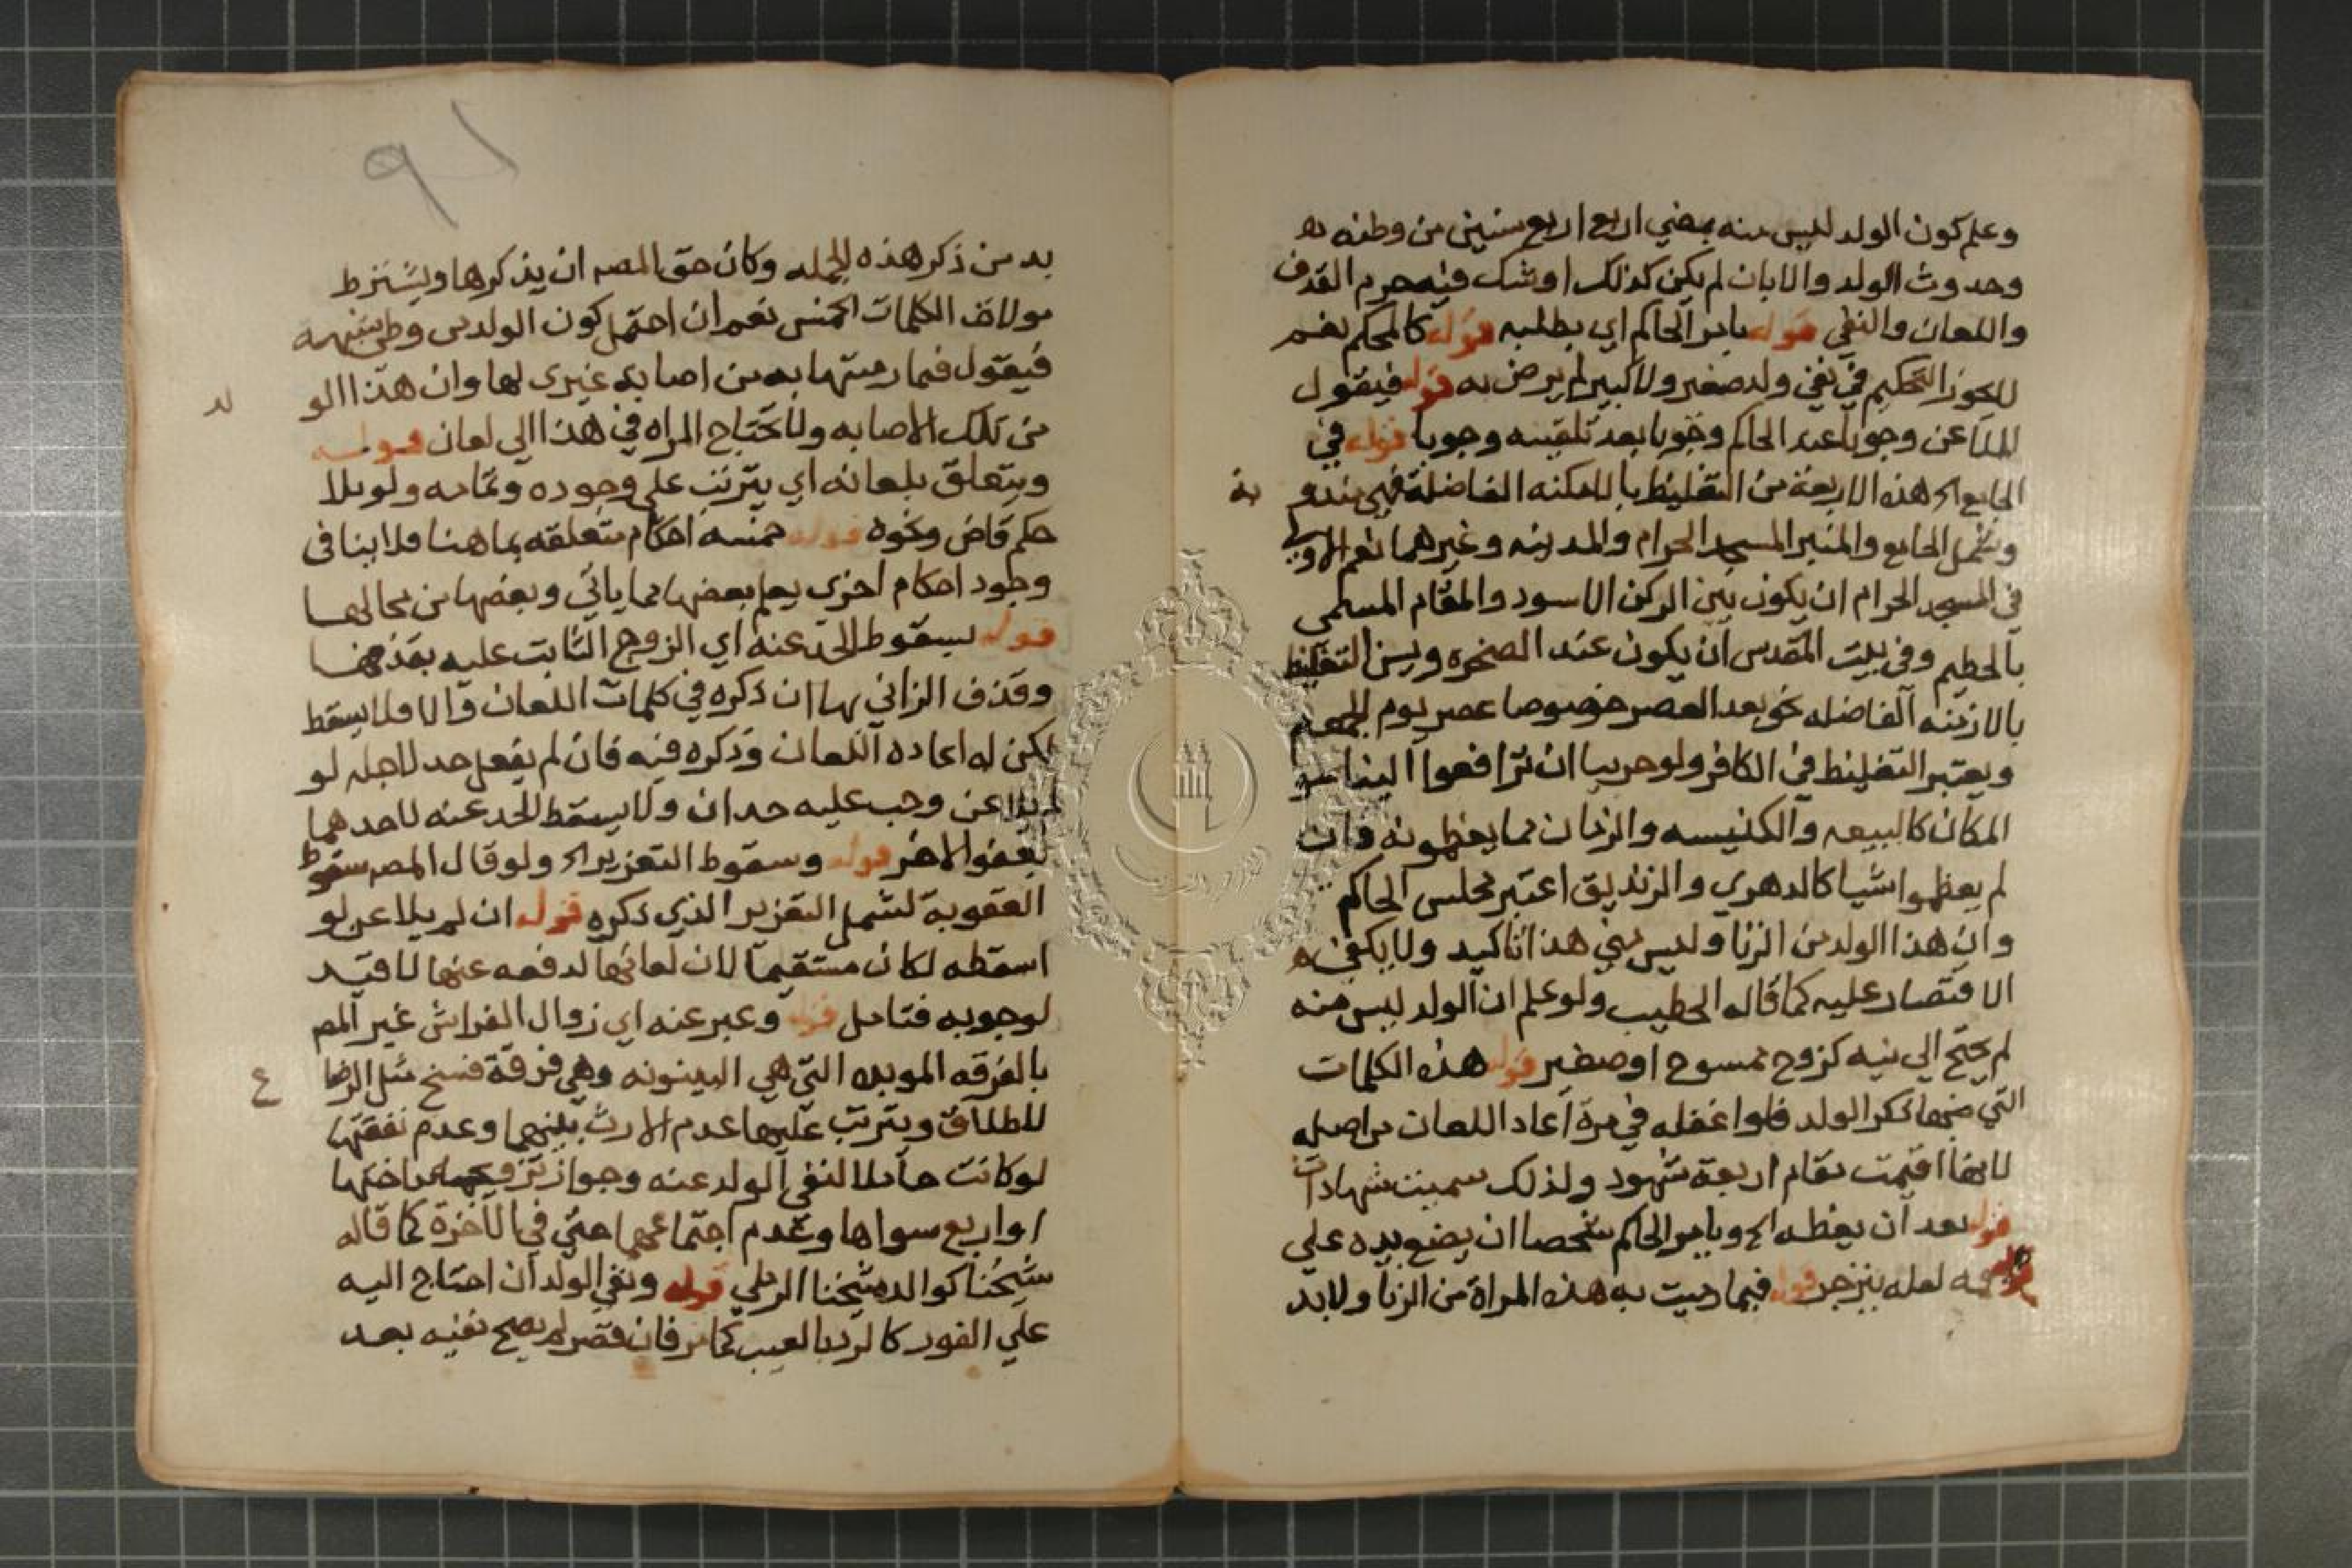 وعلم كون الولد ليس منه بمضي اربع اربع سنين من وطئه
وحدوث الولد والا بان لم يكن كذلك او شك فيه حرم القذف
واللعان والنفي قوله بامر الحاكم اي بطلبه قوله كالمحكم نعم
لا يجوز التحكيم في نفي ولد صغير ولا كبير لم يرض به قوله فيقول
الملاعن وجوبا عند الحاكم وجوبا بعد تلقينه وجوبا قوله في
الجامع الخ هذه الاربعة من التغليظ بالامكنه الفاضلة فهي مندو بة
وشمل الجامع والمنبر المسجد الحرام والمدينه وغيرهما نعم الاولى
في المسجد الحرام ان يكون بين الركن الاسود والمقام المسمى
بالحطيم وفي بيت المقدس ان يكون عند الصخره ويسن التغليظ
بالازمنه الفاضله نحو بعد العصر خصوصا عصر يوم الجمعه
ويعتبر التغليظ في الكافر ولو حربيا ان ترافعوا الينا
المكان كالبيعه والكنيسه والزمان مما يعظمونه فان
لم يعظموا شيا كالدهري والزنديق اعتبر مجلس الحاكم
وان هذا الولد من الزنا وليس مني هذا تاكيد ولا يكفي
الاقتصار عليه كما قاله الخطيب ولو علم ان الولد ليس منه
لم يحتج الى نفيه كزوج ممسوح او صغير قوله هذه الكلمات
التي منها ذكر الولد فلو اغفله في مرة اعاد اللعان من اصله
لانها اقيمت مقام اربعة شهود ولذلك سميت شهادات
قوله بعد ان يعظه الخ ويامر الحاكم شخصا ان يضع يده على
فمه لعله ينزجر قوله فيما رميت به هذه المراة من الزنا ولابد
٩١
بد من ذكر هذه الجمله وكان حق المصه ان يذكرها ويشترط
موالاة الكلمات الخمس نعم ان احتمل كون الولد من وطئ شبهه
فيقول فيما رميتها به من اصابة غيري لها وان هذا الو لد
من تلك الاصابه ولا تحتاج المراه في هذا الى لعان قوله
ويتعلق بلعانه اي يترتب على وجوده وتمامه ولو بلا
حكم قاض ونحوه قوله خمسه احكام متعلقه بما هنا فلا ينافي
وجود احكام اخرى يعلم بعضها مما ياتي وبعضها من محالها
قوله سقوط الحد عنه اي الزوج الثابت عليه بقذفها
وقذف الزاني بها ان ذكره في كلمات اللعان والا فلا يسقط
لكن له اعاده اللعان وذكره فيه فان لم يفعل حد لاجله لو
لم يلاعن وجب عليه حدان ولا يسقط الحد عنه لاحدهما
بعفو الاخر قوله وسقوط التعزير الخ ولو قال المصه سقوط
العقوبة لشمل التعزير الذي ذكره قوله ان لم يلاعن لو
اسقطه لكان مستقيما لان لعانها لدفعه عنها لا قيد
لوجوبه فتامل قوله وعبر عنه اي زوال الفراش غير المصه
بالفرقه الموبده التي هي البينونه وهي فرقة فسخ مثل الرضا ع
لا لطلاق ويترتب عليها عدم الارث بينهما وعدم نفقتها
لو كانت حاملا لنفي الولد عنه وجواز تزوجه باختها
او اربع سواها وعدم اجتماعهما حتى في الاخرة كما قاله
شيخنا كوالد شيخنا الرملي قوله ونفي الولد ان احتاج اليه
على الفور كالرد بالعيب كما مر فان قصر لم يصح نفيه بعد